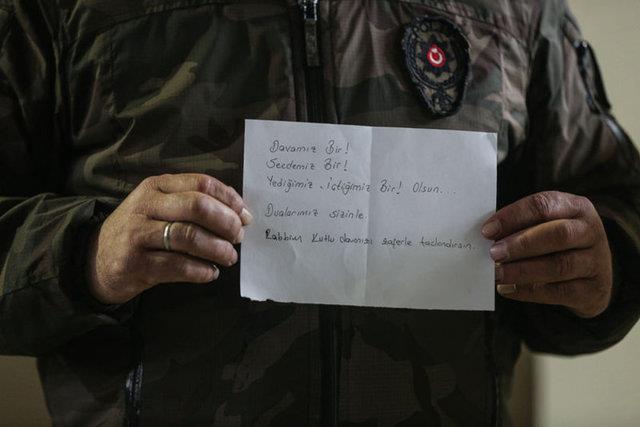 Davamız Bir!
Secdemiz Bir!
Yediğimiz, içtiğimiz Bir! Olsun...
Dualarımız sizinle.
Rabbim Kutlu davanızı zaferle taçlandırsın.